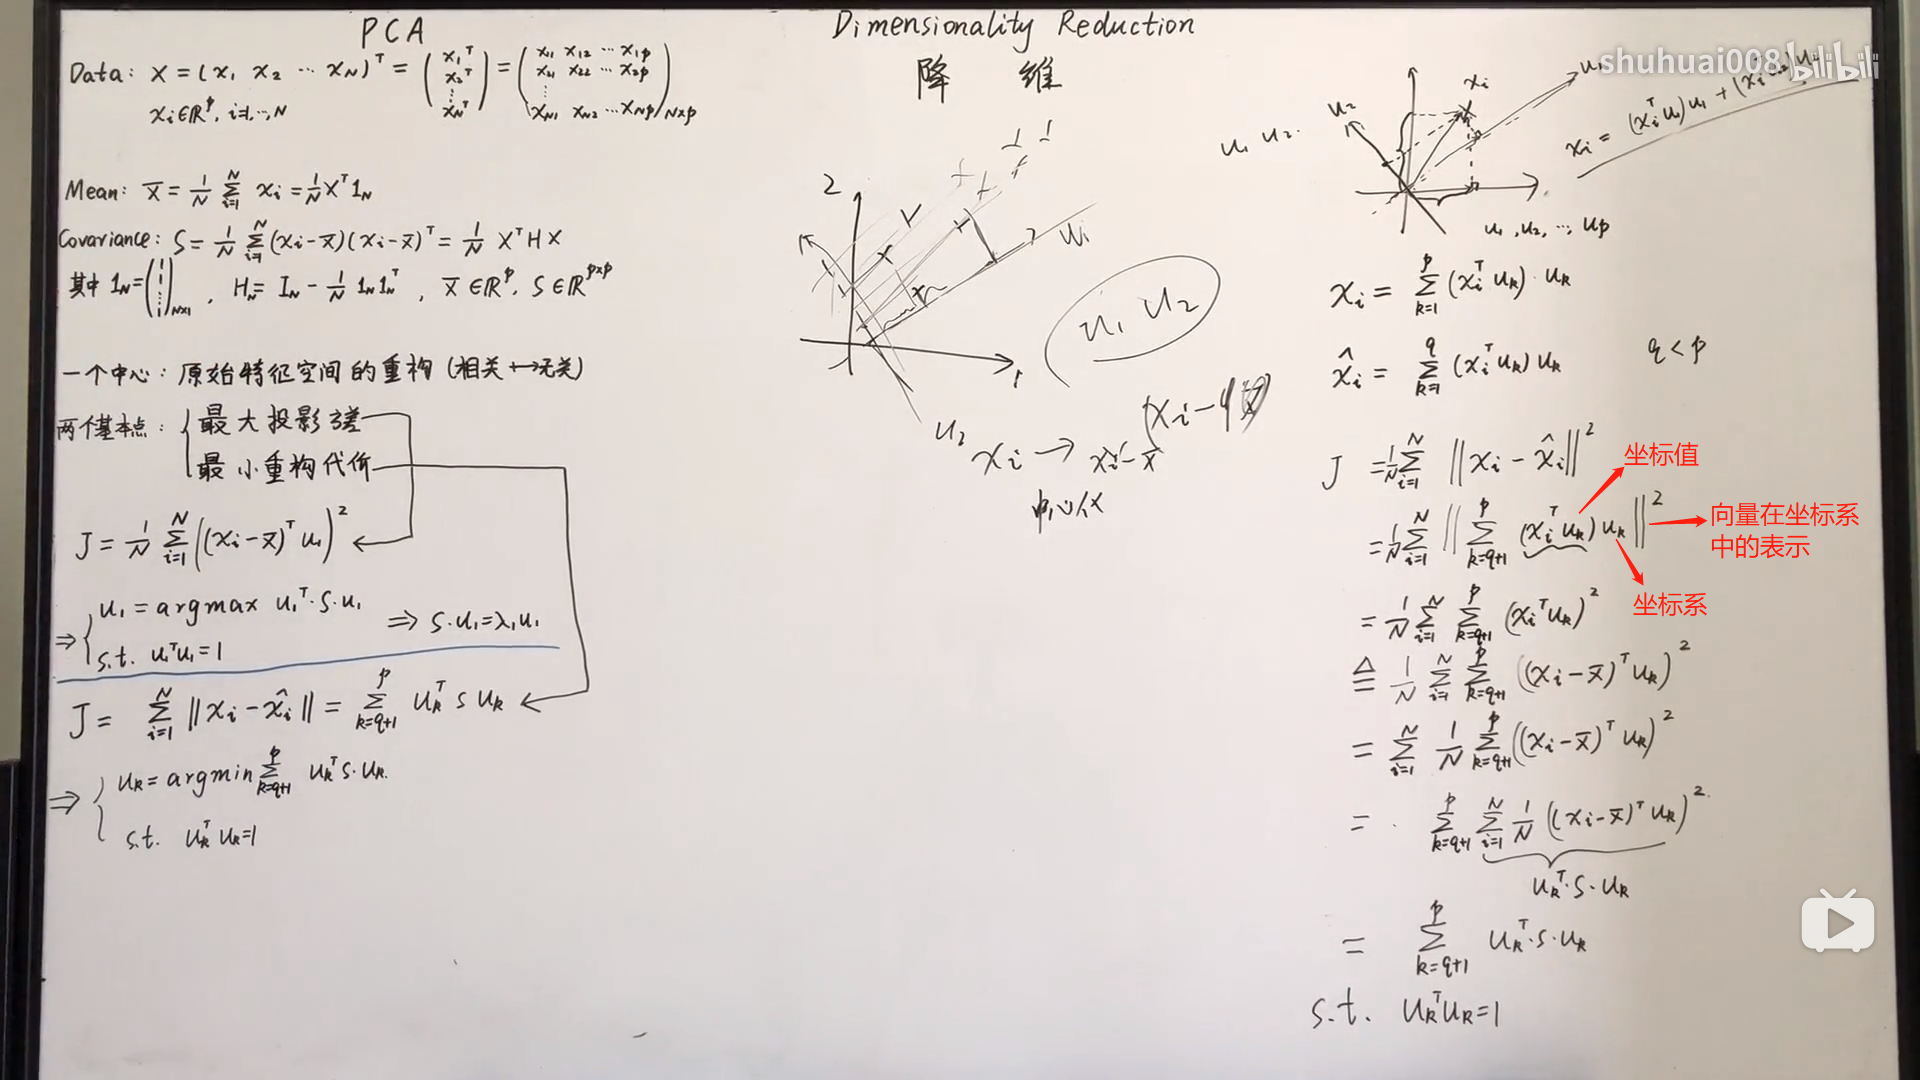 PCA
Data: X = (x₁ x₂ ⋯ x_N)ᵀ = (x₁ᵀ x₂ᵀ ⋮ x_Nᵀ) = (x₁₁ x₁₂ ⋯ x₁p x₂₁ x₂₂ ⋯ x₂p ⋮ x_N₁ x_N₂ ⋯ x_Np)_N×p
xᵢ∈ℝᵖ, i=1,⋯,N
Mean: x̄ = 1/N ∑_{i=1}^{N} xᵢ = 1/N Xᵀ1_N
Covariance: S = 1/N ∑_{i=1}^{N} (xᵢ-x̄)(xᵢ-x̄)ᵀ = 1/N XᵀHX
其中 1_N = (1 1 ⋮ 1)_N×1 , H_N = I_N - 1/N 1_N1_Nᵀ , x̄∈ℝᵖ, S∈ℝᵖˣᵖ
一个中心: 原始特征空间的重构 (相关↔无关)
两个基本点: { 最大投影方差
最小重构代价
J = 1/N ∑_{i=1}^{N} ((xᵢ-x̄)ᵀu₁)²
⇒ { u₁ = argmax u₁ᵀ·S·u₁
s.t. u₁ᵀu₁=1
⇒ S·u₁=λ₁u₁
J = ∑_{i=1}^{N} ||xᵢ-x̂ᵢ|| = ∑_{k=q+1}^{p} u_kᵀ S u_k
⇒ { u_k = argmin ∑_{k=q+1}^{p} u_kᵀS·u_k.
s.t. u_kᵀu_k=1
Dimensionality Reduction
降 维
2
1
u₁
u₂
u₁ u₂
xᵢ → xᵢ-x̄
中心化
shuhuai008
bilibili
u₁ u₂.
u₂
xᵢ
u₁
xᵢ = (xᵢᵀu₁)u₁ + (xᵢᵀu₂)u₂
u₁, u₂, ⋯, u_p
xᵢ = ∑_{k=1}^{p} (xᵢᵀu_k)·u_k
x̂ᵢ = ∑_{k=1}^{q} (xᵢᵀu_k)u_k q<p
J = 1/N ∑_{i=1}^{N} ||xᵢ - x̂ᵢ||²
坐标值
= 1/N ∑_{i=1}^{N} || ∑_{k=q+1}^{p} (xᵢᵀu_k)u_k ||²
向量在坐标系
中的表示
坐标系
= 1/N ∑_{i=1}^{N} ∑_{k=q+1}^{p} (xᵢᵀu_k)²
≜ 1/N ∑_{i=1}^{N} ∑_{k=q+1}^{p} ((xᵢ-x̄)ᵀu_k)²
= ∑_{i=1}^{N} 1/N ∑_{k=q+1}^{p} ((xᵢ-x̄)ᵀu_k)²
= ∑_{k=q+1}^{p} ∑_{i=1}^{N} 1/N ((xᵢ-x̄)ᵀu_k)²
u_kᵀ·S·u_k
= ∑_{k=q+1}^{p} u_kᵀ·S·u_k
s.t. u_kᵀu_k=1